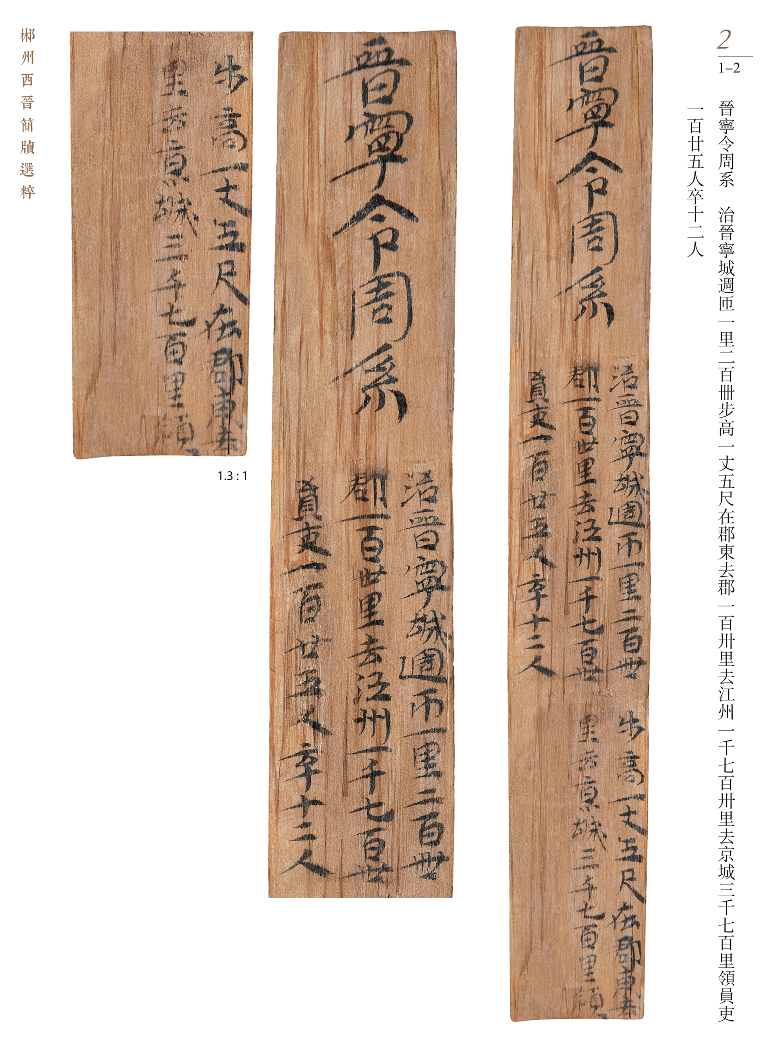 2
1–2
晉寧令周系　治晉寧城週匝一里二百卌步高一丈五尺在郡東去郡一百卅里去江州一千七百卅里去京城三千七百里領員吏
一百廿五人卒十二人
晉寧令周系
治晉寧城週帀一里二百卌
步高一丈五尺在郡東去
郡一百卅里去江州一千七百卅
里去京城三千七百里領
員吏一百廿五人卒十二人
晉寧令周系
治晉寧城週帀一里二百卌
郡一百卅里去江州一千七百卅
員吏一百廿五人卒十二人
步高一丈五尺在郡東去
里去京城三千七百里領
1.3 : 1
郴州西晉簡牘選粹